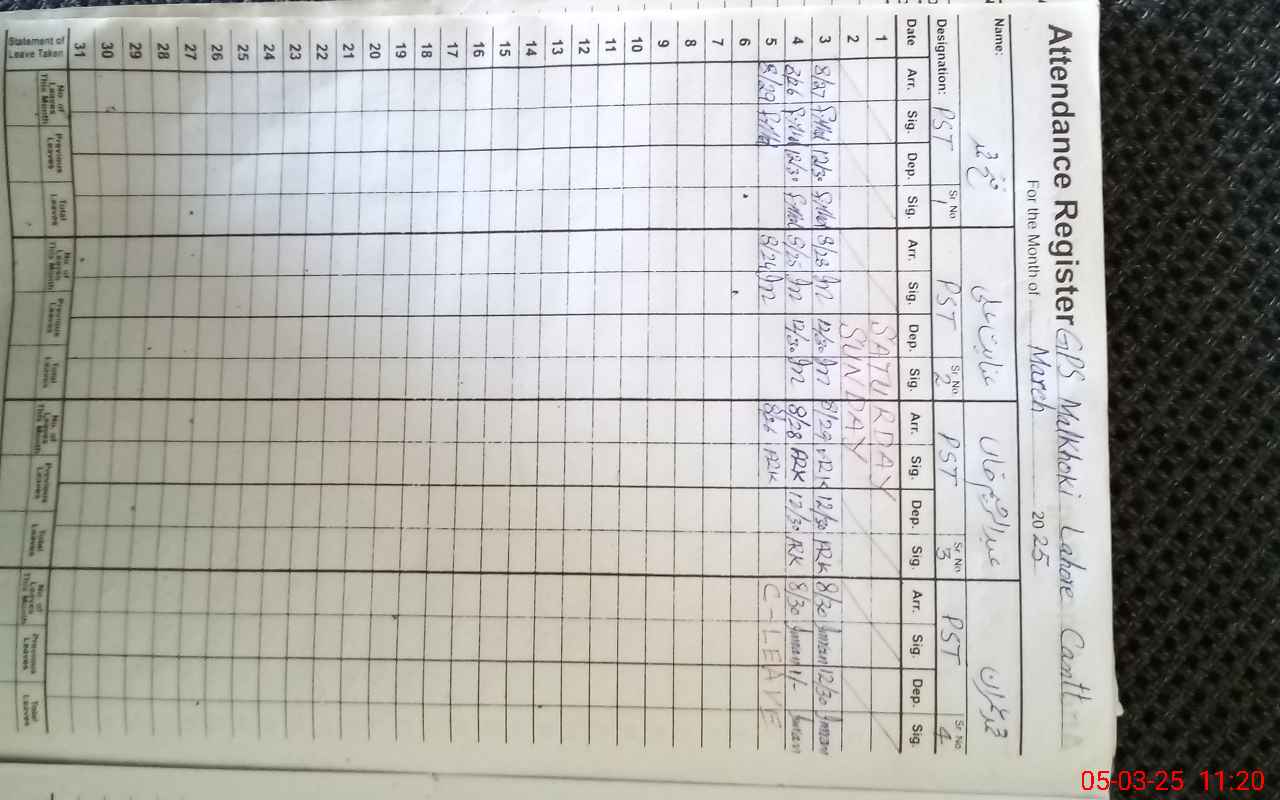 Attendance Register GPS Malkhoki Lahore Cantt
For the Month of March 2025
Name:
عبدالرحمٰن خان
Designation: PST Sr. No 1 PST Sr. No 2 PST Sr. No 3 PST Sr. No 4
Date Arr. Sig. Dep. Sig. Arr. Sig. Dep. Sig. Arr. Sig. Dep. Sig. Arr. Sig. Dep. Sig.
1 SATURDAY
2 SUNDAY
3 8/27 12/30 8/23 12/30 8/29 ARK 12/30 ARK 8/30 Iman 12/30 Iman
4 8/26 12/30 8/25 12/30 8/28 ARK 12/30 ARK 8/30 Iman 1/- Iman
5 8/29 8/24 8/26 ARK C-LEAVE
6
7
8
9
10
11
12
13
14
15
16
17
18
19
20
21
22
23
24
25
26
27
28
29
30
31
Statement of Leave Taken
No. of Leaves This Month Previous Leaves Total Leaves No. of Leaves This Month Previous Leaves Total Leaves No. of Leaves This Month Previous Leaves Total Leaves No. of Leaves This Month Previous Leaves Total Leaves
05-03-25 11:20